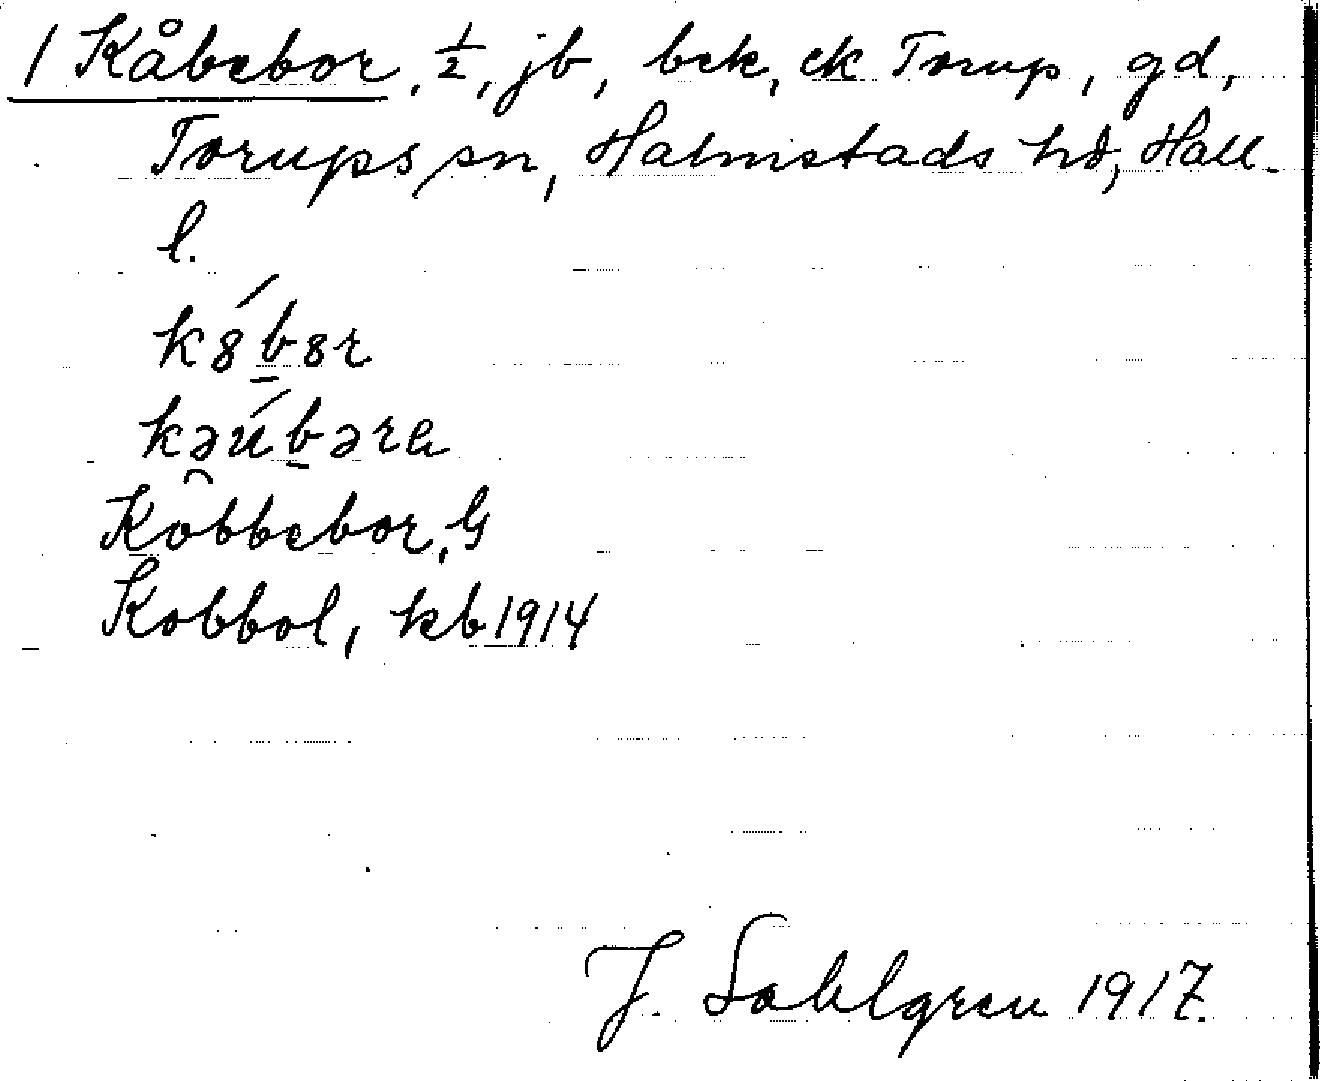 1 Kåbebor, ½, jb, bek, ek Torup, gd,
Torups sn, Halmstads hd, Hall-
l.
k8́b̲8r
kəúb̲ərɐ
Kobbebor, G
Kobbol, kb 1914
J. Sahlgren 1917.